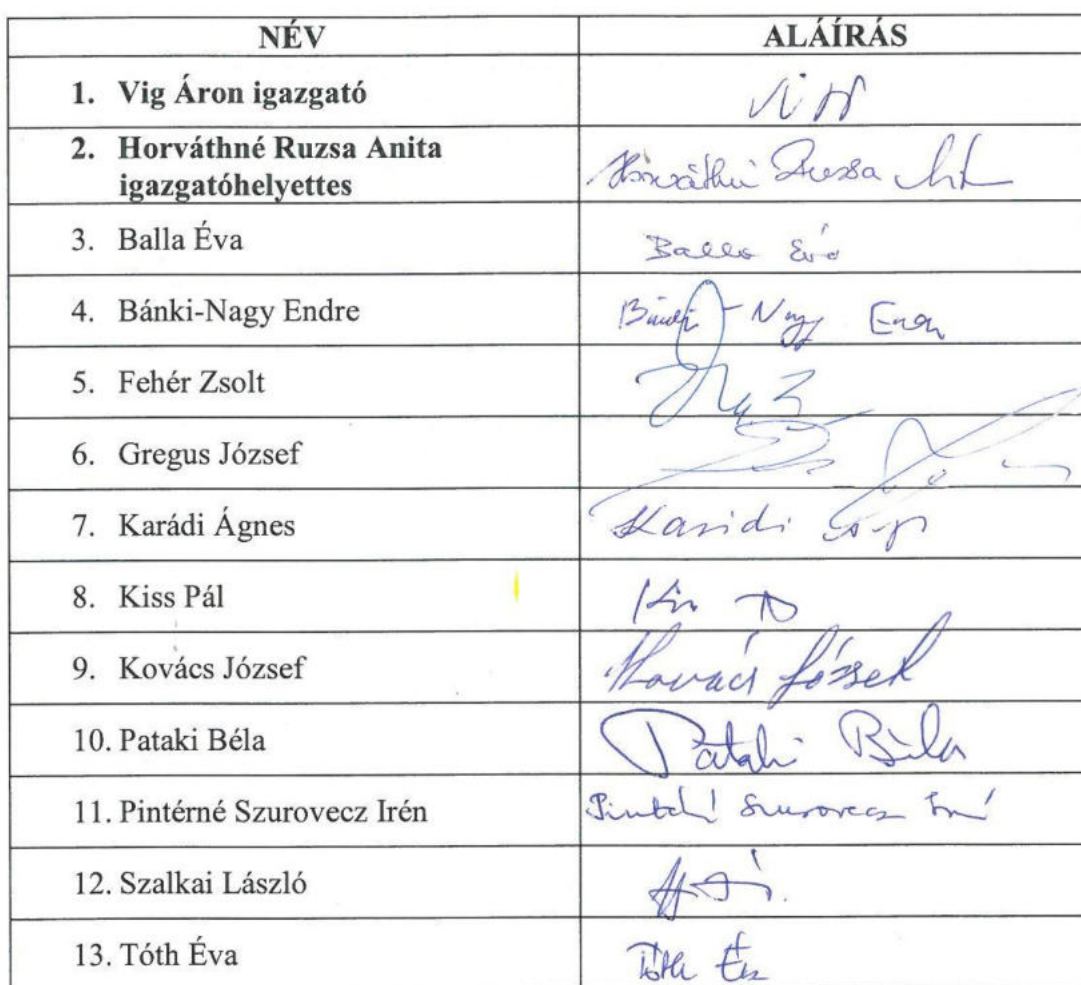 NÉV ALÁÍRÁS
1. Vig Áron igazgató
2. Horváthné Ruzsa Anita
igazgatóhelyettes Horváthné Ruzsa
3. Balla Éva Balla Éva
4. Bánki-Nagy Endre Bánki-Nagy
5. Fehér Zsolt
6. Gregus József
7. Karádi Ágnes Karádi
8. Kiss Pál Kiss
9. Kovács József Kovács József
10. Pataki Béla Pataki Béla
11. Pintérné Szurovecz Irén Pintérné Szurovecz Irén
12. Szalkai László
13. Tóth Éva Tóth Éva